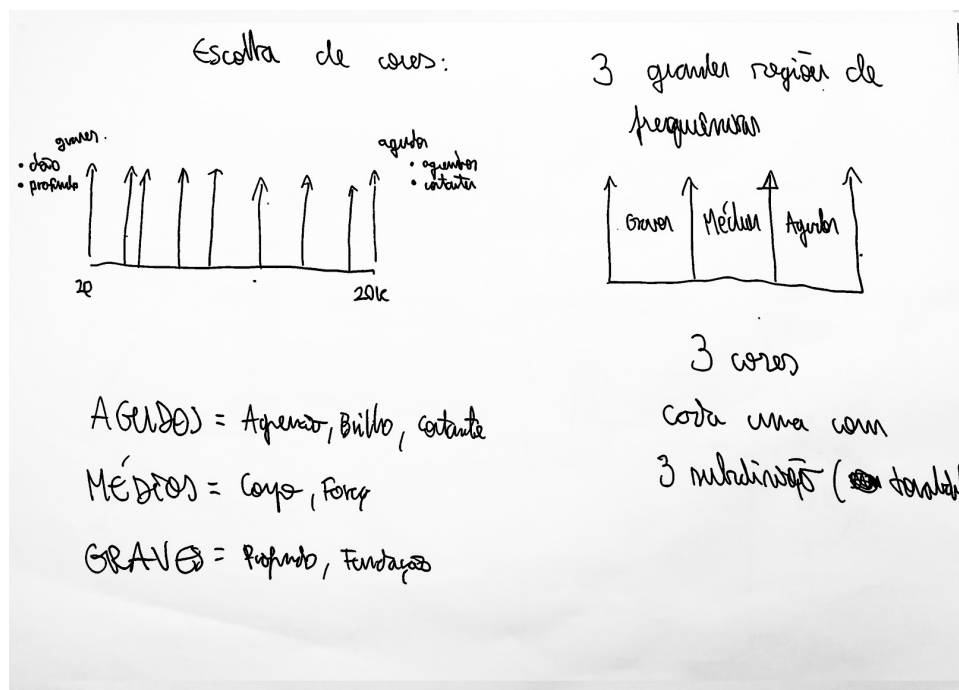 Escolha de cores:
graves.
• chão
• profundo
agudos
• agressivos
• cortantes
20
20k
AGUDOS = Agressivo, Brilho, cortante
MÉDIOS = Corpo, Força
GRAVES = Profundo, Fundação
3 grandes região de
frequências
Graves
Médios
Agudos
3 cores
cada uma com
3 subdivisão (